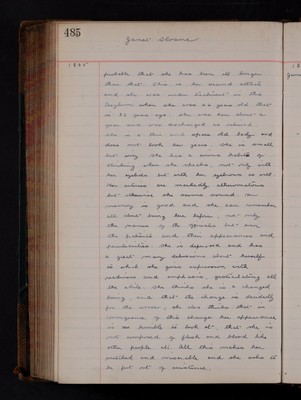 485
Janet Sloane
1885
probable that she has been ill longer
than that. This is her second attack
and she was under treatment in this
Asylum when she was 20 years old that
is 33 years ago. She was here about a
year and was discharged as relieved
She is a thin and spare old lady and
does not look her years. She is small
but wiry. She has a curious habit of
blinking when she speaks, not only with
her eyelids but with her eyebrows as well
Her actions are markedly
but otherwise she seems sound. Her
memory is good and she can remember
all about being here before, not only
the names of the officials but even
the patients and their appearances and
peculiarities. She is depressed and has
a great many delusions about herself
to which she gives expression with
and emphasis, gesticulating all
the while. She thinks she is a changed
being, and that the change is decidedly
for the worse; she also thinks that in
consequence of this change her appearance
is too horrible to look at, that she is
not composed of flesh and blood like
other people etc. All this makes her
wretched and miserable and she asks to
be put out of existence.